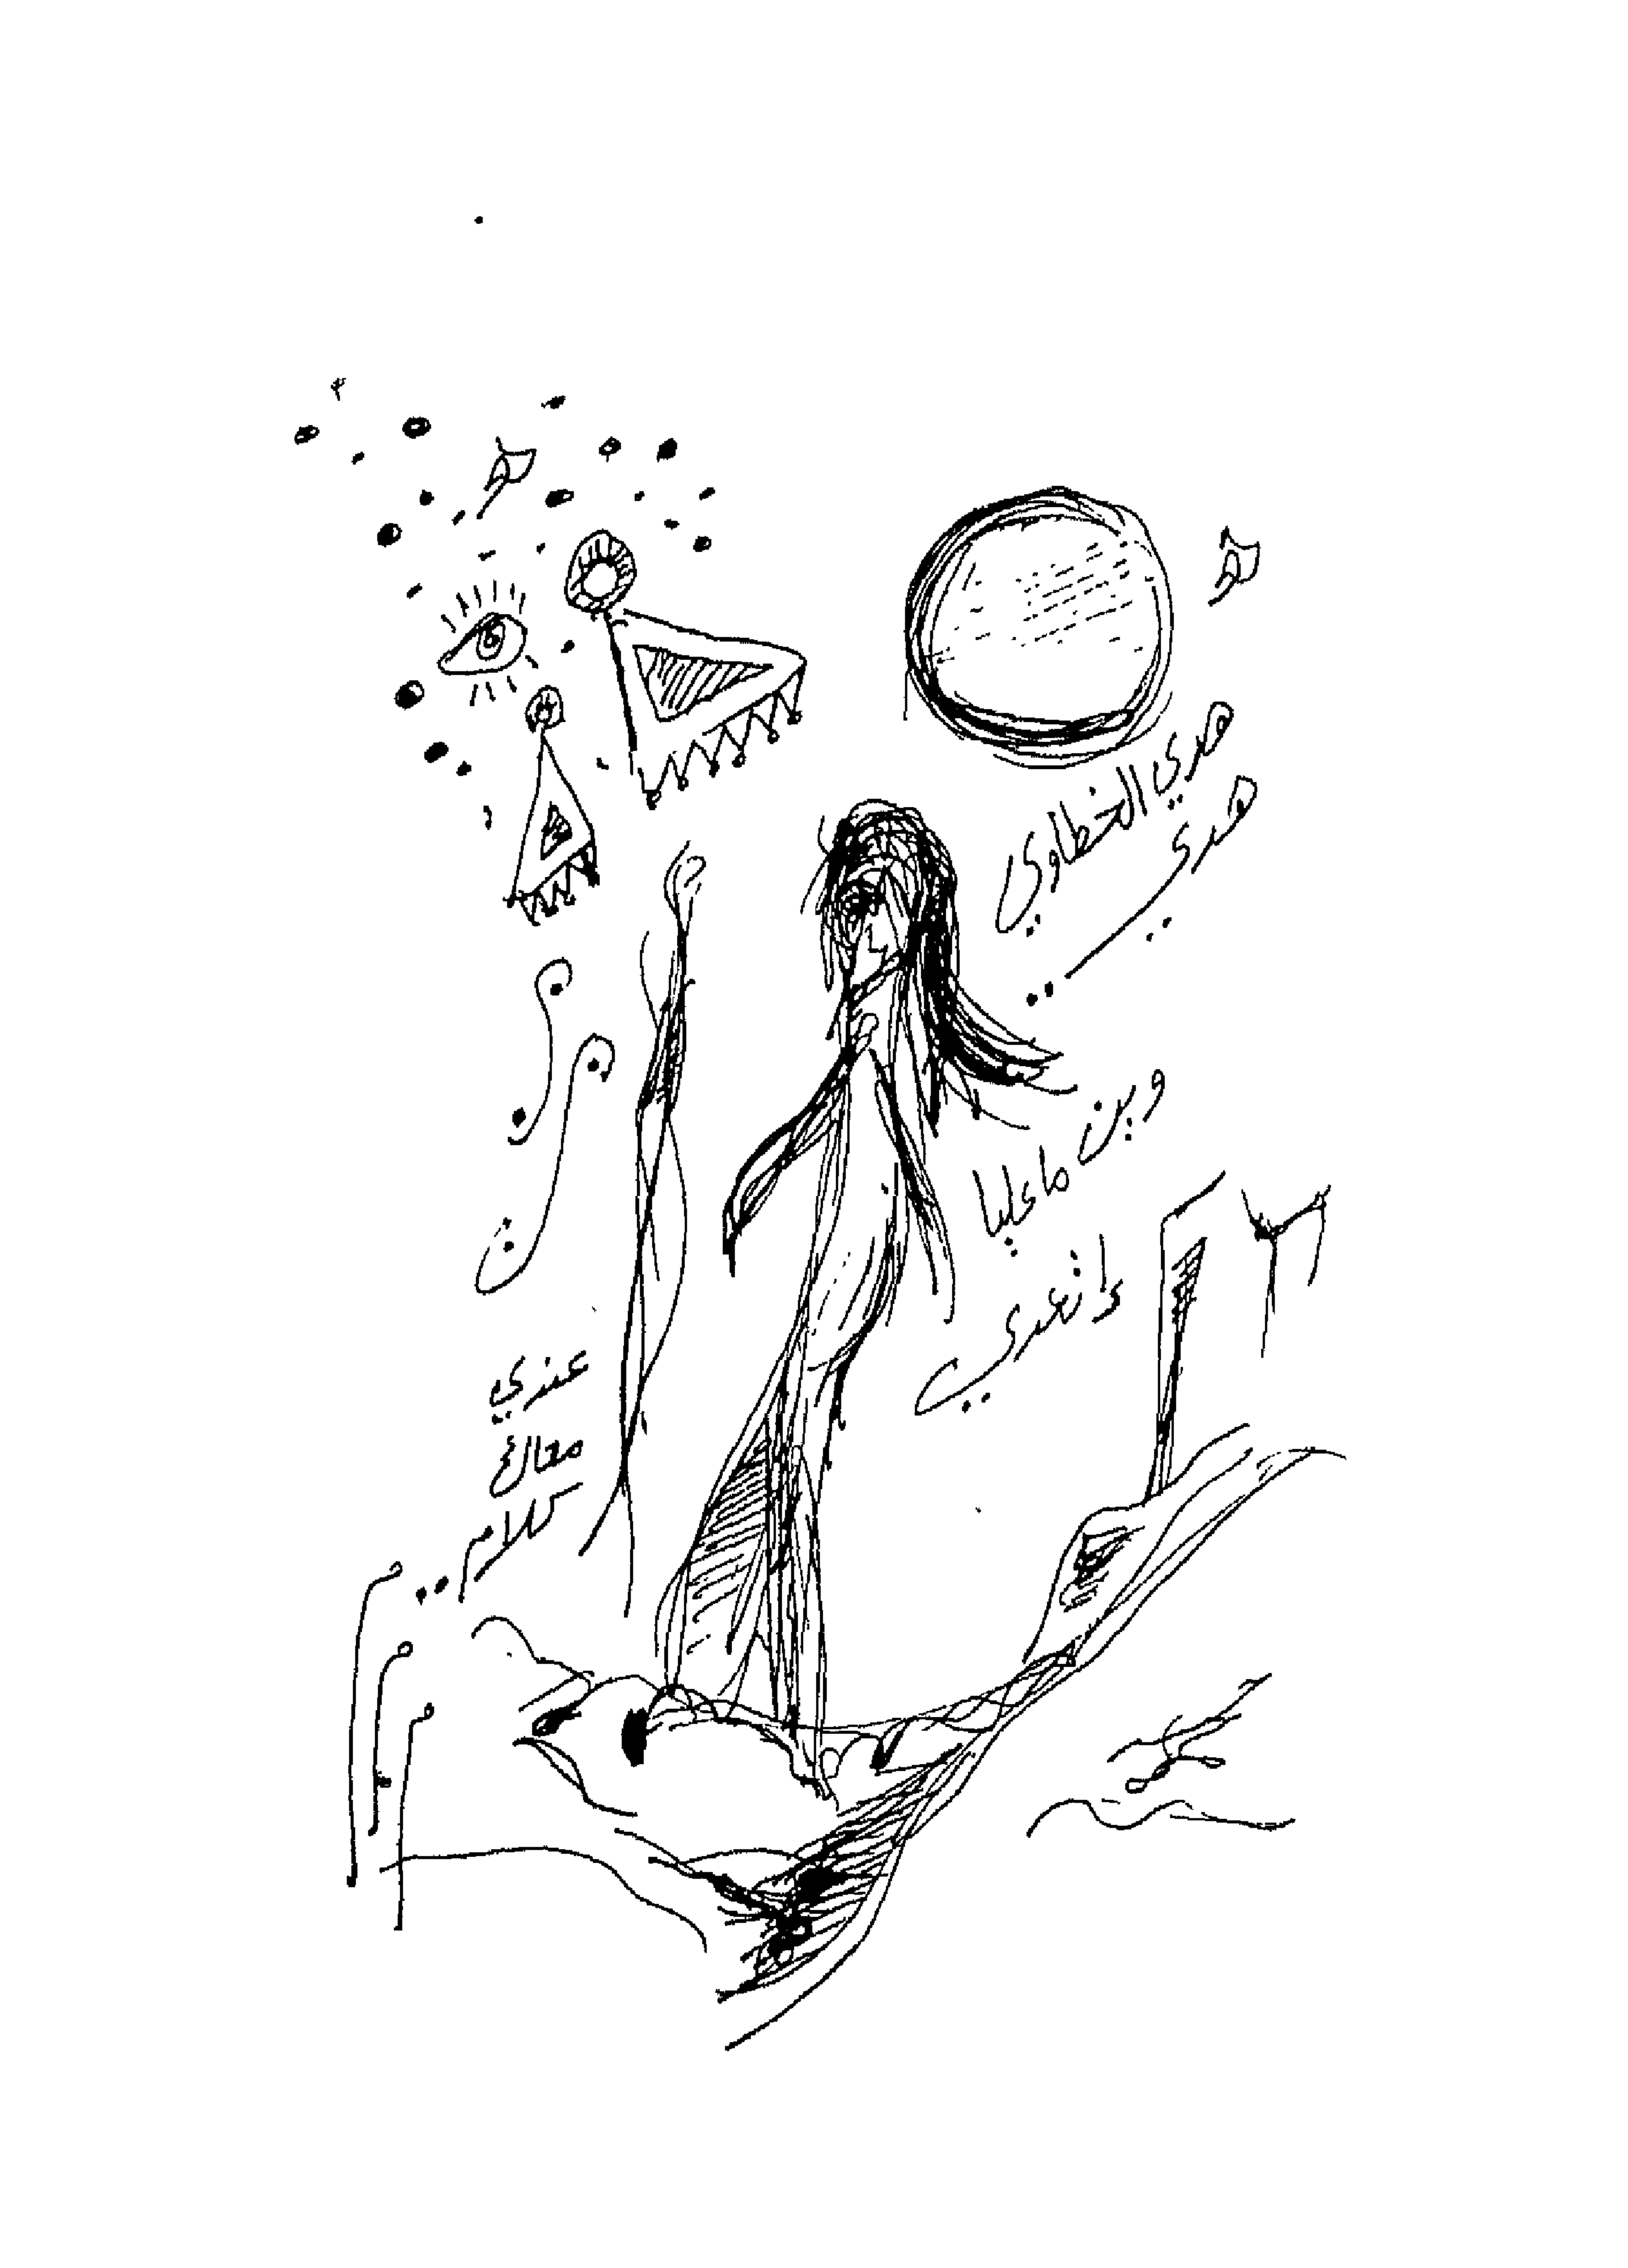 هدي الخطاوي
هدي ..
وين ما
لا تعدي
عندي
معاك
كلام ..